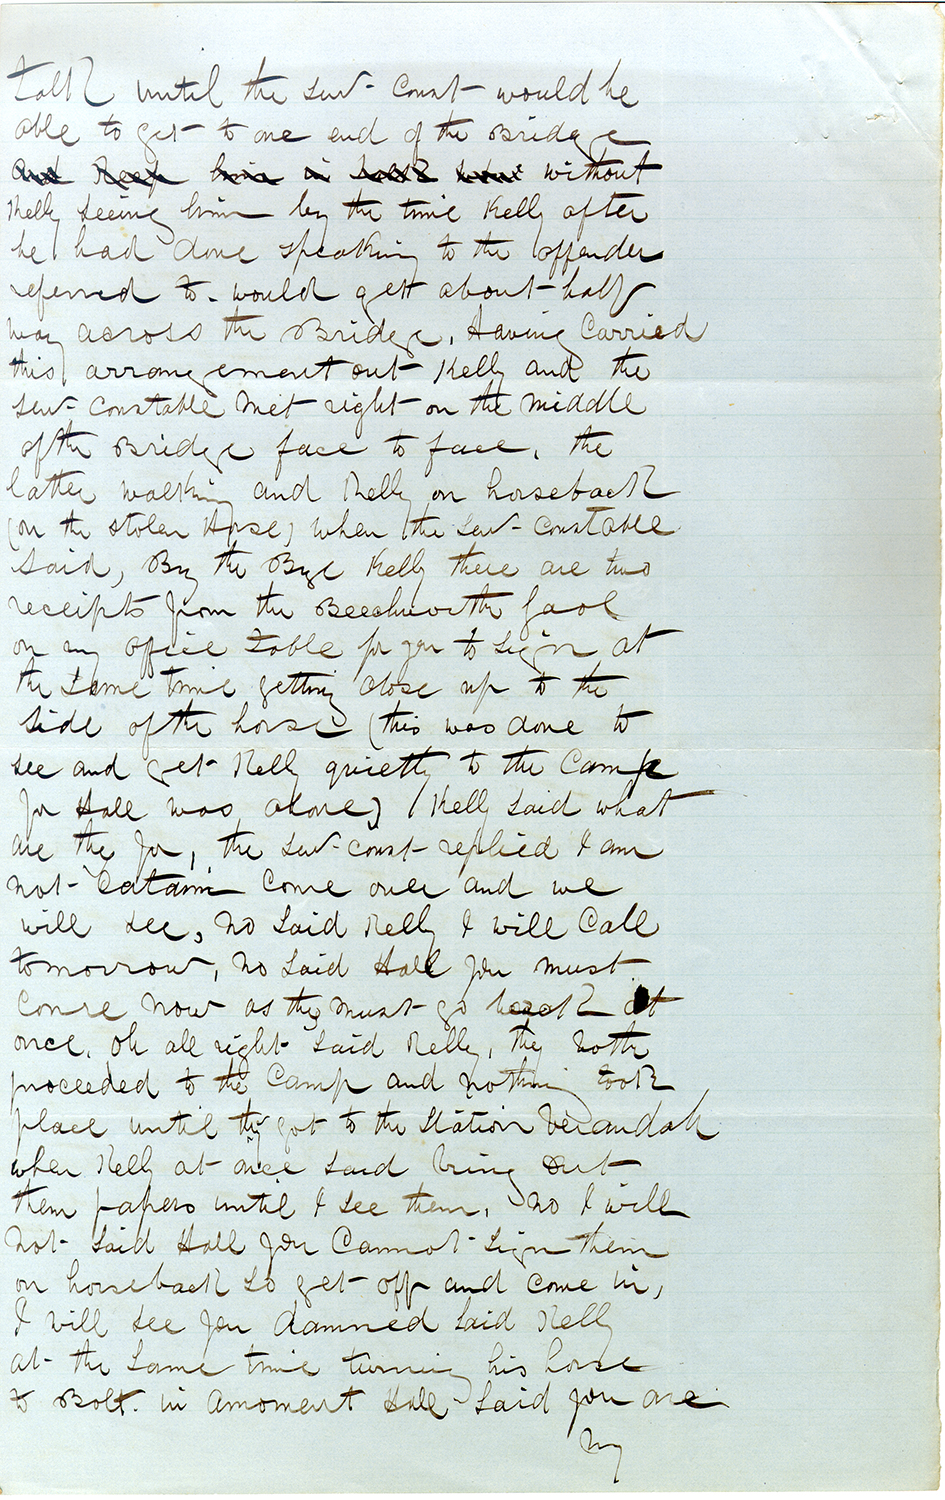 talk until the Sen- Const- would be
able to get to one end of the Bridge
and keep him in talk without
Kelly seeing him by the time Kelly after
he had done speaking to the offender
referred to- would gett about half
way across the Bridge, Having Carried
this arrangement out Kelly and the
Sen- Constable Met right on the Middle
of the Bridge face to face, the
latter walking and Kelly on horseback
(on the stolen Horse) when the Sen- Constable
Said, By the Bye Kelly there are two
receipts from the Beechworth Gaol
on my office table for you to Sign at
the Same time getting close up to the
Side of the horse (this was done to
see and get Kelly quietly to the Camp
for Hall was alone) Kelly Said what
are the for, the Sen- const- replied I am
not- Catain Come over and we
will see, No Said Kelly I will Call
tomorrow, No Said Hall you must
Come Now as they must go back at
once, Oh all right Said Kelly, they both
proceeded to the Camp and nothing took
place until they got to the Station Verandah
when Kelly at once Said bring out
them papers until I see them, No I will
Not- Said Hall you Cannot Sign them
on horseback So get off and Come in,
I will see you damned Said Kelly
at the Same time turning his horse
to Bolt. in Amoment Hall Said you are
My